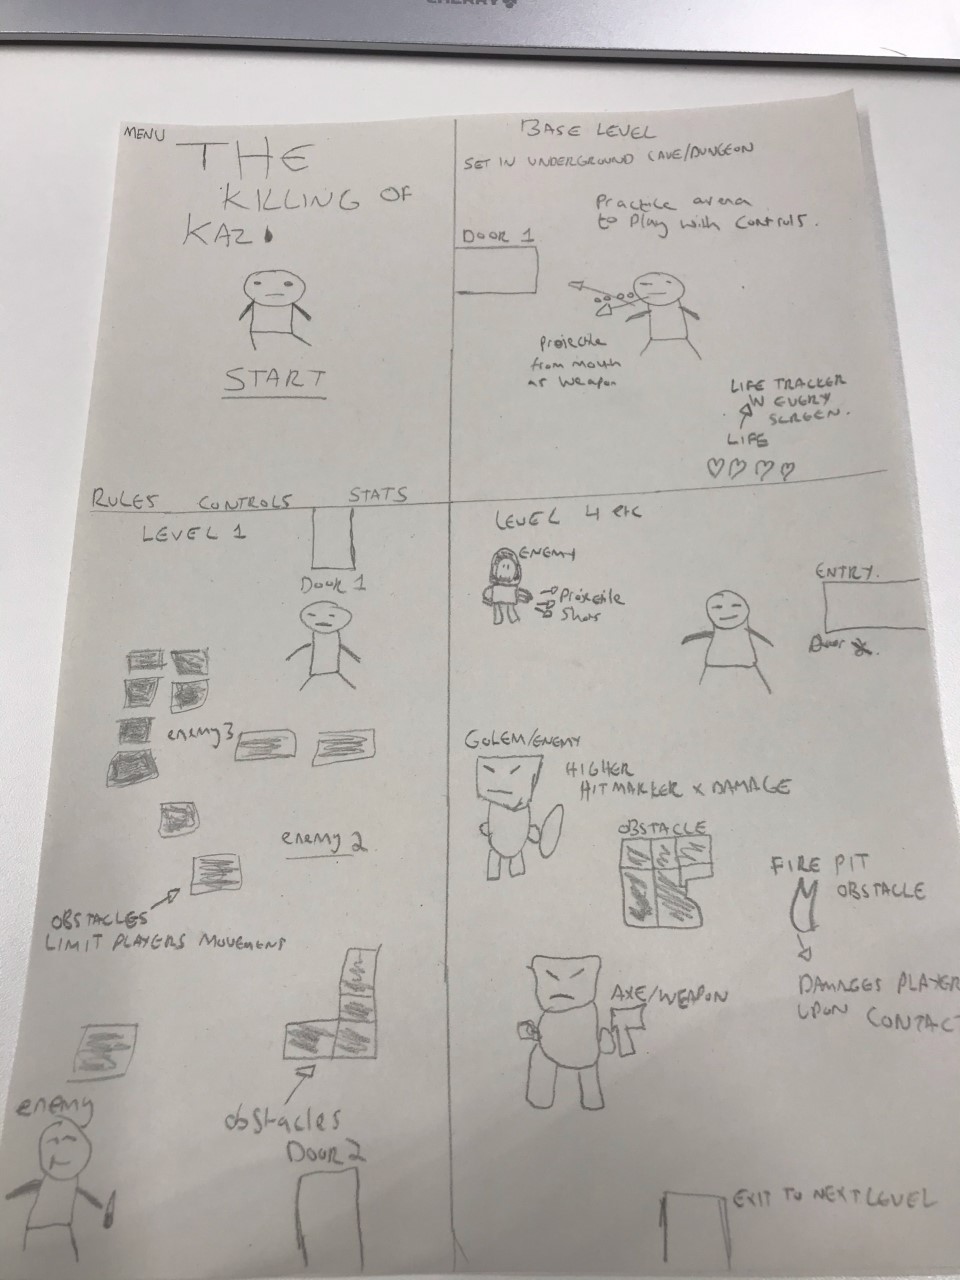 MENU
THE
KILLING OF
KAZ.
START
RULES CONTROLS STATS
BASE LEVEL
SET IN UNDERGROUND CAVE/DUNGEON
Practice arena
to Play with Controls.
DOOR 1
Projectile
from mouth
as weapon
LIFE TRACKER
IN EVERY
SCREEN.
LIFE
LEVEL 1
DOOR 1
enemy 3
enemy 2
OBSTACLES
LIMIT PLAYERS MOVEMENT
enemy
obstacles
DOOR 2
LEVEL 4 etc
ENEMY
Projectile
ENTRY.
GOLEM/ENEMY
HIGHER
HITMARKER x DAMAGE
OBSTACLE
FIRE PIT
OBSTACLE
DAMAGES PLAYER
UPON CONTACT
AXE/WEAPON
EXIT TO NEXT LEVEL